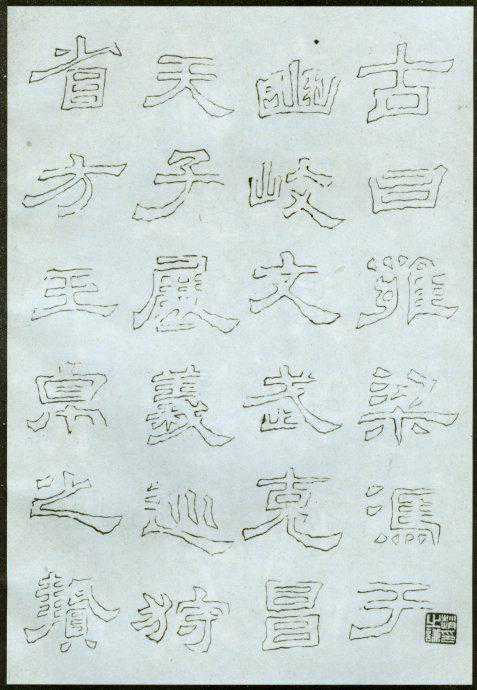 古曰雍梁馮于
岐文武克昌
天子展義巡狩
省方玉帛之贄